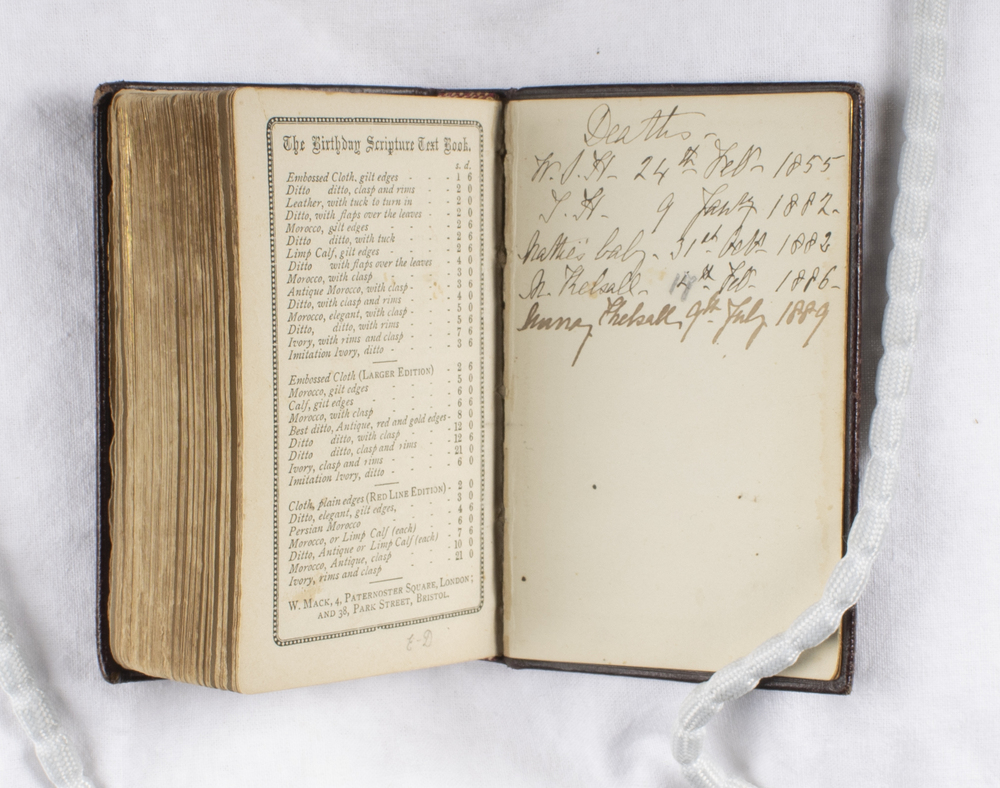 The Birthday Scripture Text Book.
s. d.
Embossed Cloth, gilt edges - - 1 6
Ditto ditto, clasp and rims - - 2 0
Leather, with tuck to turn in - - 2 0
Ditto, with flaps over the leaves - - 2 0
Morocco, gilt edges - - - - 2 6
Ditto ditto, with tuck - - - 2 6
Limp Calf, gilt edges - - - - 2 6
Ditto with flaps over the leaves - - 4 0
Morocco, with clasp - - - - 3 0
Antique Morocco, with clasp - - - 3 6
Ditto, with clasp and rims - - - 4 0
Morocco, elegant, with clasp - - - 5 0
Ditto, ditto, with rims - - - 5 6
Ivory, with rims and clasp - - - 7 6
Imitation Ivory, ditto - - - - 3 6
Embossed Cloth (LARGER EDITION) - 2 6
Morocco, gilt edges - - - - 5 0
Calf, gilt edges - - - - 6 0
Morocco, with clasp - - - - 6 6
Best ditto, Antique, red and gold edges - 8 0
Ditto ditto, with clasp - - - 12 0
Ditto ditto, clasp and rims - - - 12 6
Ivory, clasp and rims - - - - 21 0
Imitation Ivory, ditto - - - - 6 0
Cloth, plain edges (RED LINE EDITION) - 2 0
Ditto, elegant, gilt edges, - - - 3 0
Persian Morocco - - - - 4 6
Morocco, or Limp Calf (each) - - 6 0
Ditto, Antique or Limp Calf (each) - 7 6
Morocco, Antique, clasp - - - 10 0
Ivory, rims and clasp - - - - 21 0
W. MACK, 4, PATERNOSTER SQUARE, LONDON;
AND 38, PARK STREET, BRISTOL.
Deaths -
W. J. H - 24th Feb - 1855
T. H - 9 Janry 1882 -
baby - 31st 1882
M. Kelsall - Feb - 1886 -
Kelsall 9th July 1889